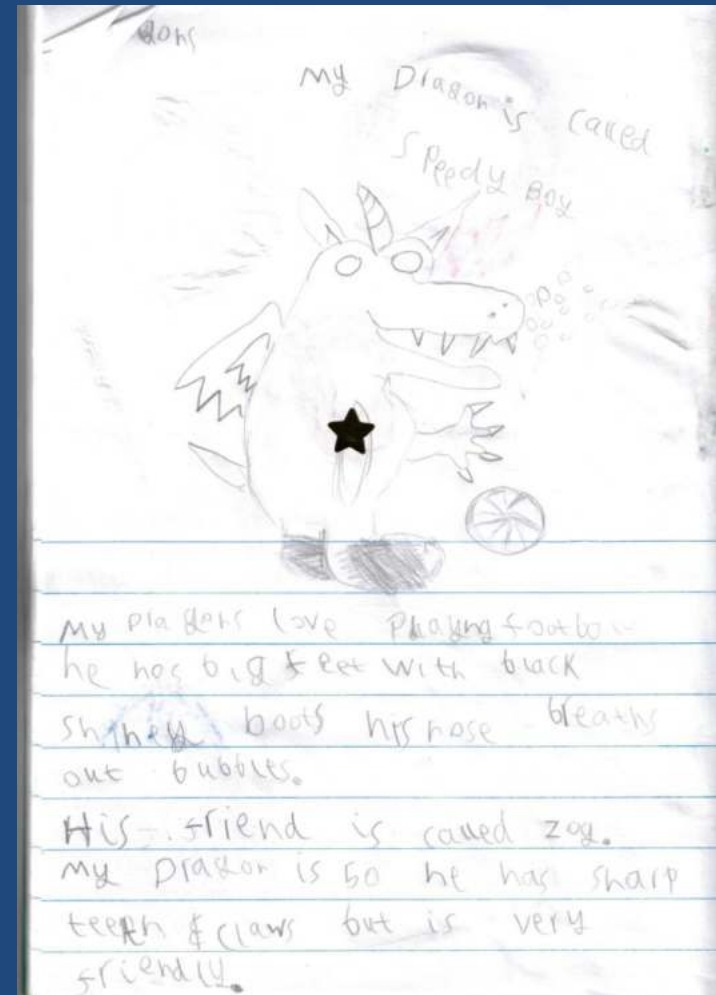 My Dragon is called
Speedy Boy
My Dragons love playing
he has big feet with black
shiney boots his nose breaths
out bubbles.
His friend is called Zog.
My Dragon is 50 he has sharp
teeth & claws but is very
friendly.